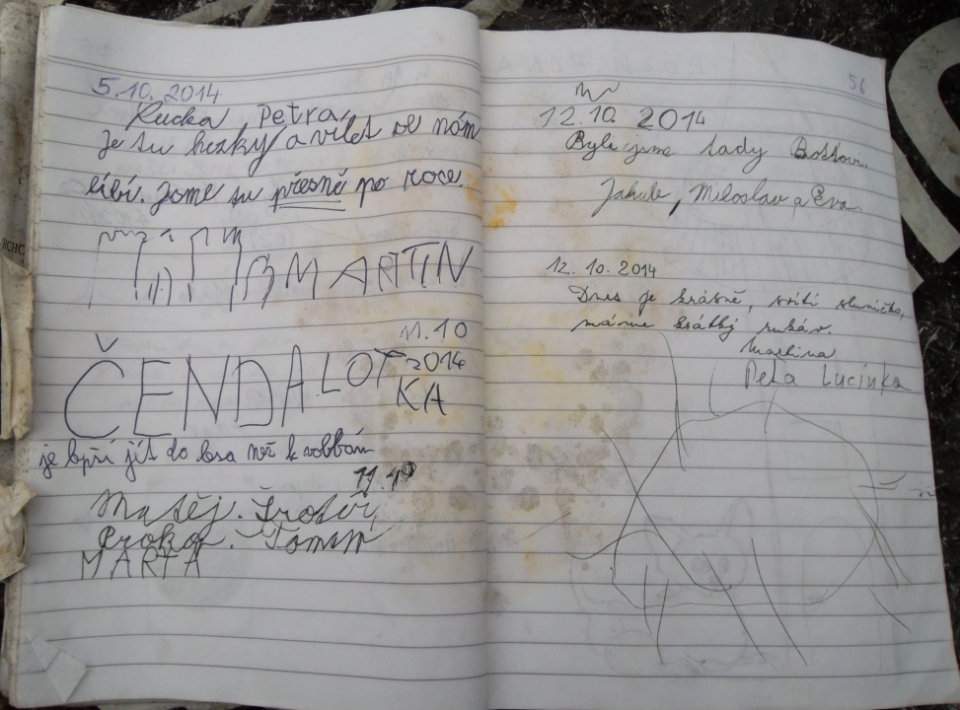 5.10.2014
Petra,
Je tu hezky a výlet se nám
líbí. Jsme tu přesně po roce.
MARTIN
11.10
2014
ČENDA LOT
KA
je lpší jít do lesa než k
11.10
Matěj.
MARTA
56
12.10 2014
Byli jsme tady
Jakub, Miloslav a Eva.
12. 10. 2014
Dnes je krásně, svítí sluníčko,
máme krátký rukáv.
Peťa Lucinka